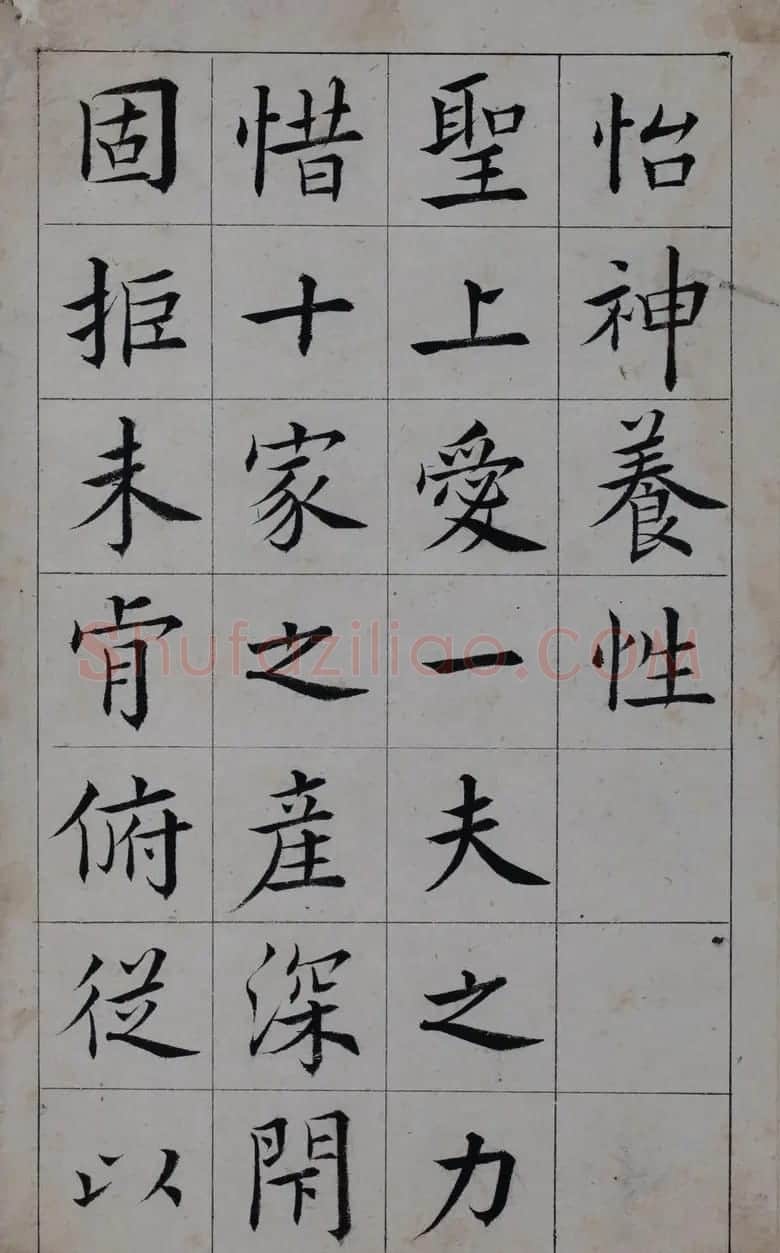 怡神養性
聖上愛一夫之力
惜十家之產深閇
固拒未肯俯從以
Shufaziliao.COM